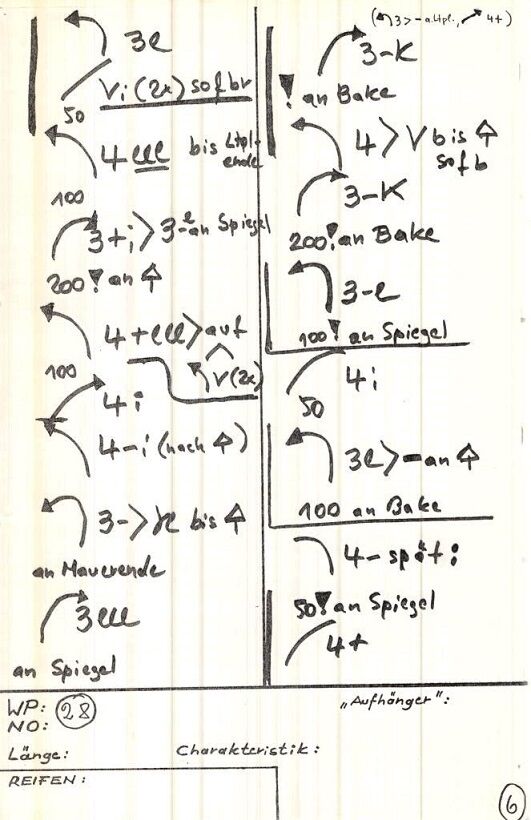 3e
Vi (2x) sofbr
50
4 lll bis Ltpl-
ende
100
3+i > 3-e an Spiegel
200! an
4+lll > auf
V (2x)
100
4i
4-i (nach
3-> bis
an Mauerende
3lll
an Spiegel
3-K
! an Bake
4 > V b bis
sofb
3-K
200! an Bake
3-e
100! an Spiegel
4i
50
3e > - an
100 an Bake
4- spät i
50! an Spiegel
4+
WP: 28
NO:
„Aufhänger“:
Länge:
Charakteristik:
REIFEN:
6